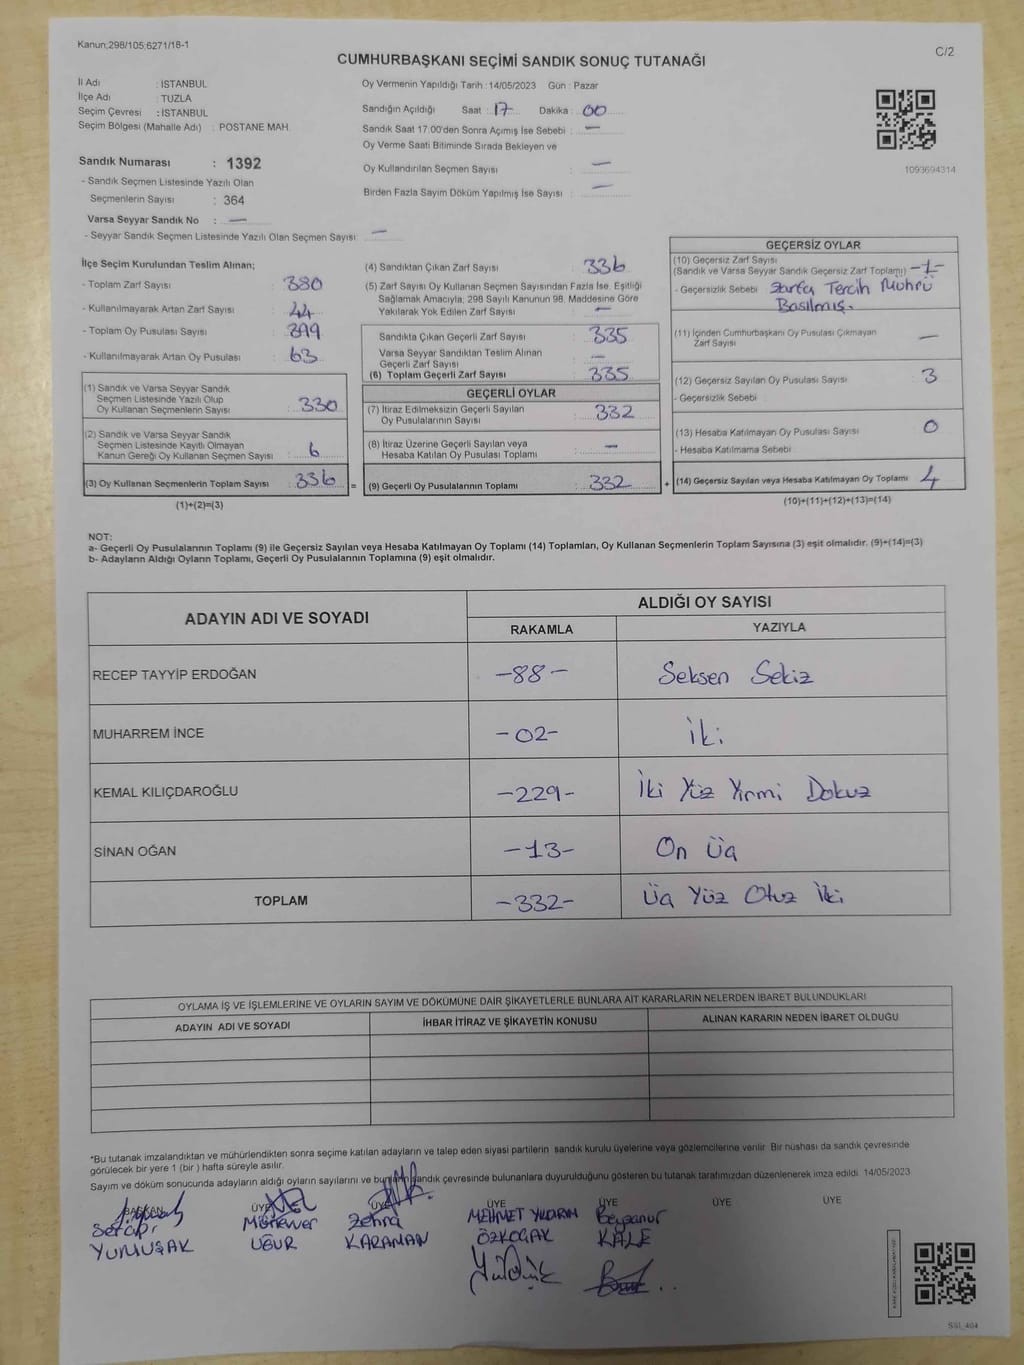 Kanun;298/105;6271/18-1
C/2
CUMHURBAŞKANI SEÇİMİ SANDIK SONUÇ TUTANAĞI
İl Adı : İSTANBUL
İlçe Adı : TUZLA
Seçim Çevresi : İSTANBUL
Seçim Bölgesi (Mahalle Adı) : POSTANE MAH.
Oy Vermenin Yapıldığı Tarih : 14/05/2023 Gün : Pazar
Sandığın Açıldığı Saat : 17 Dakika : 00
Sandık Saat 17:00'den Sonra Açımış İse Sebebi : —
Oy Verme Saati Bitiminde Sırada Bekleyen ve
Oy Kullandırılan Seçmen Sayısı : —
Birden Fazla Sayım Döküm Yapılmış İse Sayısı : —
1093694314
Sandık Numarası : 1392
- Sandık Seçmen Listesinde Yazılı Olan
Seçmenlerin Sayısı : 364
Varsa Seyyar Sandık No : —
- Seyyar Sandık Seçmen Listesinde Yazılı Olan Seçmen Sayısı: —
İlçe Seçim Kurulundan Teslim Alınan;
- Toplam Zarf Sayısı : 380
- Kullanılmayarak Artan Zarf Sayısı : 44
- Toplam Oy Pusulası Sayısı : 399
- Kullanılmayarak Artan Oy Pusulası : 63
(1) Sandık ve Varsa Seyyar Sandık
Seçmen Listesinde Yazılı Olup
Oy Kullanan Seçmenlerin Sayısı : 330
(2) Sandık ve Varsa Seyyar Sandık
Seçmen Listesinde Kayıtlı Olmayan
Kanun Gereği Oy Kullanan Seçmen Sayısı : 6
(3) Oy Kullanan Seçmenlerin Toplam Sayısı : 336
(1)+(2)=(3)
(4) Sandıktan Çıkan Zarf Sayısı : 336
(5) Zarf Sayısı Oy Kullanan Seçmen Sayısından Fazla İse, Eşitliği
Sağlamak Amacıyla, 298 Sayılı Kanunun 98. Maddesine Göre
Yakılarak Yok Edilen Zarf Sayısı : —
Sandıkta Çıkan Geçerli Zarf Sayısı : 335
Varsa Seyyar Sandıktan Teslim Alınan
Geçerli Zarf Sayısı : —
(6) Toplam Geçerli Zarf Sayısı : 335
GEÇERLİ OYLAR
(7) İtiraz Edilmeksizin Geçerli Sayılan
Oy Pusulalarının Sayısı : 332
(8) İtiraz Üzerine Geçerli Sayılan veya
Hesaba Katılan Oy Pusulası Toplamı : —
= (9) Geçerli Oy Pusulalarının Toplamı : 332
GEÇERSİZ OYLAR
(10) Geçersiz Zarf Sayısı
(Sandık ve Varsa Seyyar Sandık Geçersiz Zarf Toplamı) -1-
- Geçersizlik Sebebi : Zarfa Tercih Mührü
Basılmış.
(11) İçinden Cumhurbaşkanı Oy Pusulası Çıkmayan
Zarf Sayısı : —
(12) Geçersiz Sayılan Oy Pusulası Sayısı : 3
- Geçersizlik Sebebi :
(13) Hesaba Katılmayan Oy Pusulası Sayısı : 0
- Hesaba Katılmama Sebebi :
+ (14) Geçersiz Sayılan veya Hesaba Katılmayan Oy Toplamı : 4
(10)+(11)+(12)+(13)=(14)
NOT:
a- Geçerli Oy Pusulalarının Toplamı (9) ile Geçersiz Sayılan veya Hesaba Katılmayan Oy Toplamı (14) Toplamları, Oy Kullanan Seçmenlerin Toplam Sayısına (3) eşit olmalıdır. (9)+(14)=(3)
b- Adayların Aldığı Oyların Toplamı, Geçerli Oy Pusulalarının Toplamına (9) eşit olmalıdır.
ADAYIN ADI VE SOYADI
ALDIĞI OY SAYISI
RAKAMLA YAZIYLA
RECEP TAYYİP ERDOĞAN -88- Seksen Sekiz
MUHARREM İNCE -02- İki
KEMAL KILIÇDAROĞLU -229- İki Yüz Yirmi Dokuz
SİNAN OĞAN -13- On Üç
TOPLAM -332- Üç Yüz Otuz İki
OYLAMA İŞ VE İŞLEMLERİNE VE OYLARIN SAYIM VE DÖKÜMÜNE DAİR ŞİKAYETLERLE BUNLARA AİT KARARLARIN NELERDEN İBARET BULUNDUKLARI
ADAYIN ADI VE SOYADI İHBAR İTİRAZ VE ŞİKAYETİN KONUSU ALINAN KARARIN NEDEN İBARET OLDUĞU
*Bu tutanak imzalandıktan ve mühürlendikten sonra seçime katılan adayların ve talep eden siyasi partilerin sandık kurulu üyelerine veya gözlemcilerine verilir. Bir nüshası da sandık çevresinde
görülecek bir yere 1 (bir ) hafta süreyle asılır.
Sayım ve döküm sonucunda adayların aldığı oyların sayılarını ve bunların sandık çevresinde bulunanlara duyurulduğunu gösteren bu tutanak tarafımızdan düzenlenerek imza edildi. 14/05/2023
BAŞKAN ÜYE ÜYE ÜYE ÜYE ÜYE ÜYE
Serapi Münevver Zehra MEHMET YILDIRIM Beyzanur
YUMUŞAK UĞUR KARAMAN ÖZKOÇAK KALE
SSİ_404